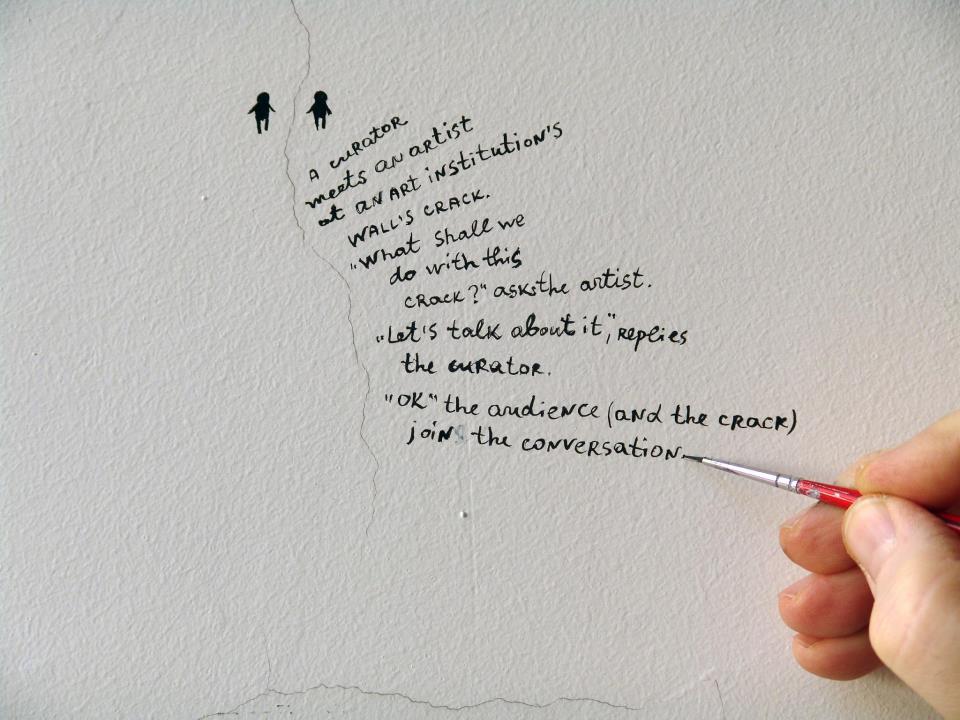 A curator
meets an artist
at an art institution's
wall's crack.
"What shall we
do with this
crack?" asks the artist.
"Let's talk about it," replies
the curator.
"OK" the audience (and the crack)
join the conversation.